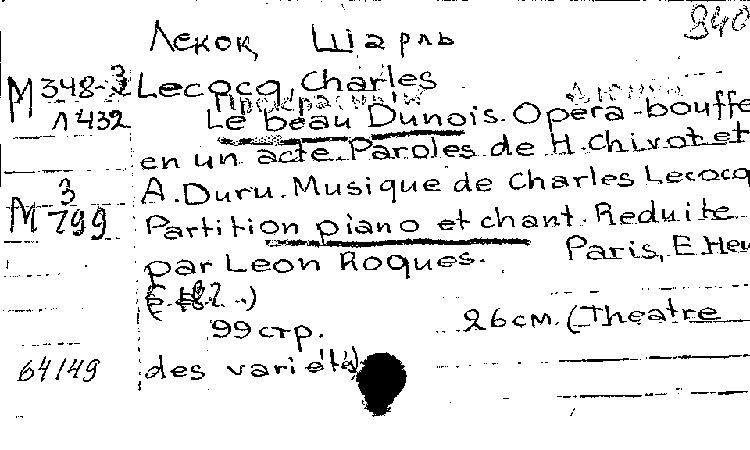 840
Лекок, Шарль
M 348-3 Lecocq, Charles
Л 432 Le beau Dunois. Opéra-bouffe
en un acte. Paroles de H. Chivot et
A. Duru. Musique de Charles Lecocq
M 3 799
Partition piano et chant. Reduite
par Leon Roques. Paris, E. Heu
99 стр. 26 см. (Theatre
64149 des variétés)